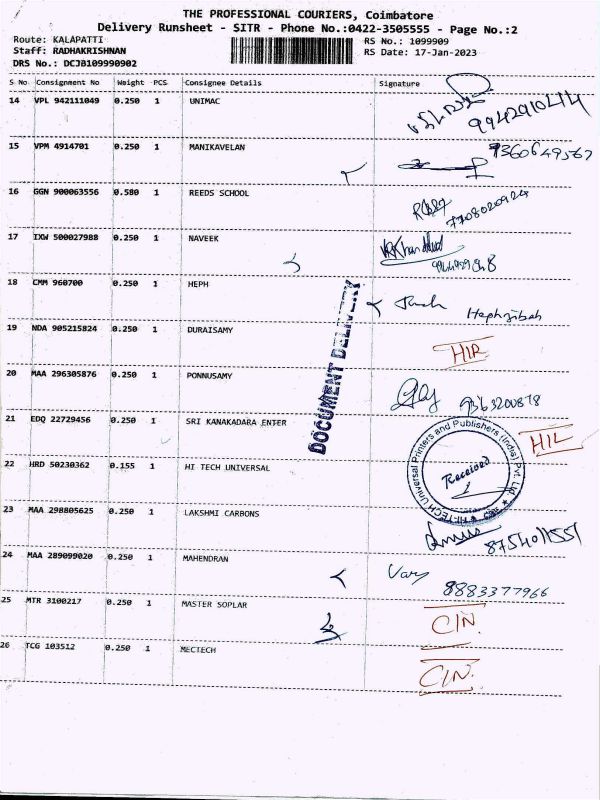 THE PROFESSIONAL COURIERS, Coimbatore
Delivery Runsheet - SITR - Phone No.:0422-3505555 - Page No.:2
Route: KALAPATTI
RS No.: 1099909
Staff: RADHAKRISHNAN
RS Date: 17-Jan-2023
DRS No.: DCJB109990902
S No Consignment No Weight PCS Consignee Details Signature
14 VPL 942111049 0.250 1 UNIMAC
9942910414
15 VPM 4914701 0.250 1 MANIKAVELAN 7360649567
16 GGN 900063556 0.580 1 REEDS SCHOOL
7708020924
17 IXW 500027988 0.250 1 NAVEEK
18 CMM 960700 0.250 1 HEPH Hephzibah
19 NDA 905215824 0.250 1 DURAISAMY HIR
20 MAA 296305876 0.250 1 PONNUSAMY 9363200878
DOCUMENT DELIVERY
21 EDQ 22729456 0.250 1 SRI KANAKADARA ENTER HIL
22 HRD 50230362 0.155 1 HI TECH UNIVERSAL
HI-TECH Universal Printers and Publishers (India) Pvt. Ltd.
Received
23 MAA 298805625 0.250 1 LAKSHMI CARBONS
8754011551
24 MAA 289099020 0.250 1 MAHENDRAN Vary
8883377966
25 MTR 3100217 0.250 1 MASTER SOPLAR CIN.
26 TCG 103512 0.250 1 MECTECH CIN.